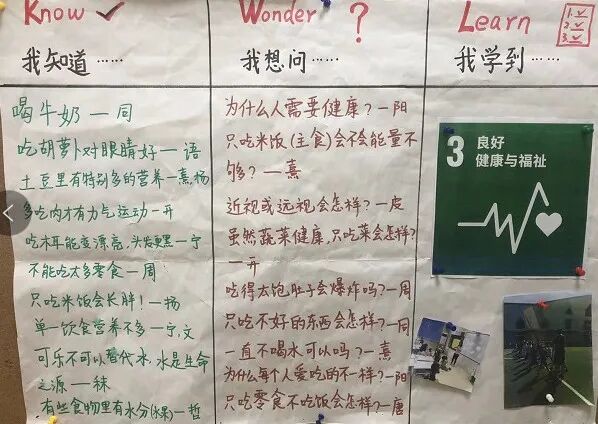 Know ✓
我知道……
喝牛奶 — 同
吃胡萝卜对眼睛好 — 语
土豆里有特别多的营养 — 熹,杨
多吃肉才有力气运动 — 开
吃木耳能变漂亮,头发更黑 — 宁
不能吃太多零食 — 周
只吃米饭会长胖! — 杨
单一饮食营养不多 — 宁,文
可乐不可以替代水,水是生命
之源 — 秣
有些食物里有水分(水果) — 哲
Wonder ?
我想问……
为什么人需要健康? — 阳
只吃米饭(主食)会不会能量不
够? — 熹
近视或远视会怎样? — 皮
虽然蔬菜健康,只吃菜会怎样?
— 开
吃得太饱肚子会爆炸吗? — 周
只吃不好的东西会怎样? — 同
一直不喝水可以吗? — 熹
为什么每个人爱吃的不一样? — 阳
只吃零食不吃饭会怎样? — 唐
Learn
1. ✓
2. ✓
3. ✓
我学到……
3 良好
健康与福祉